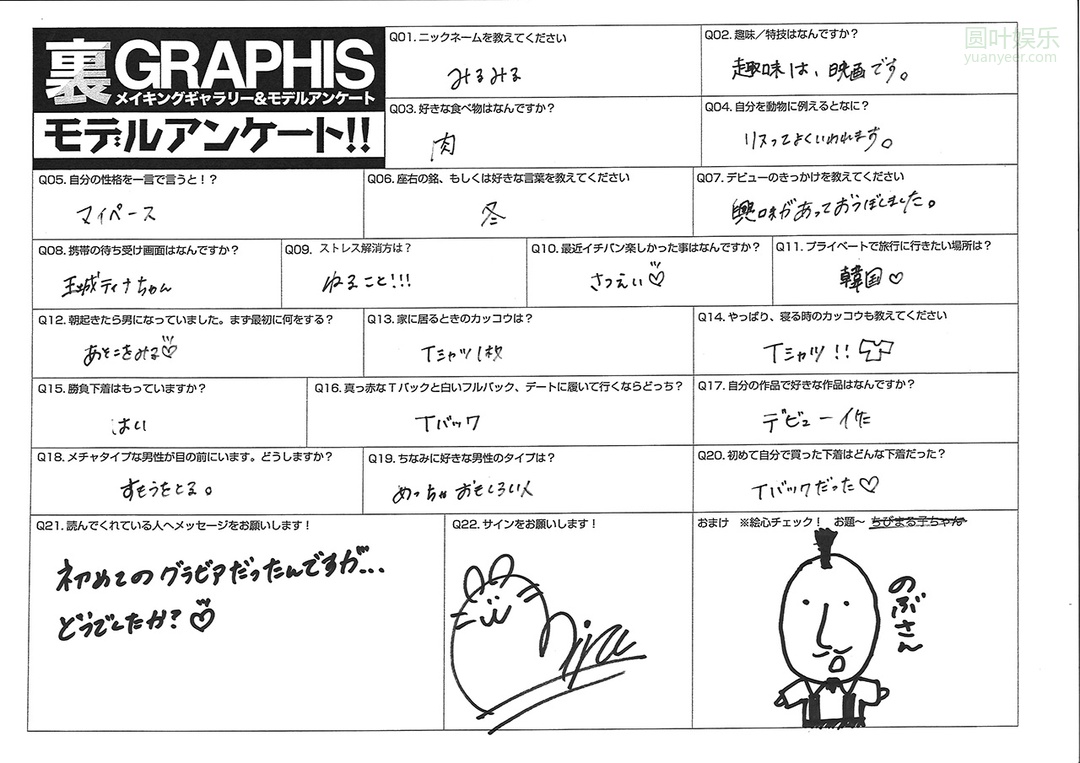 裏GRAPHIS
メイキングギャラリー&モデルアンケート
モデルアンケート!!
圆叶娱乐
yuanyeer.com
Q01. ニックネームを教えてください
みるみる
Q02. 趣味／特技はなんですか？
趣味は、映画です。
Q03. 好きな食べ物はなんですか？
肉
Q04. 自分を動物に例えるとなに？
リスってよくいわれます。
Q05. 自分の性格を一言で言うと！？
マイペース
Q06. 座右の銘、もしくは好きな言葉を教えてください
冬
Q07. デビューのきっかけを教えてください
興味があっておうぼしました。
Q08. 携帯の待ち受け画面はなんですか？
玉城ティナちゃん
Q09. ストレス解消方は？
ねること!!!
Q10. 最近イチバン楽しかった事はなんですか？
さつえい♡
Q11. プライベートで旅行に行きたい場所は？
韓国♡
Q12. 朝起きたら男になっていました。まず最初に何をする？
あそこをみる♡
Q13. 家に居るときのカッコウは？
Tシャツ1枚
Q14. やっぱり、寝る時のカッコウも教えてください
Tシャツ!!
Q15. 勝負下着はもっていますか？
はい
Q16. 真っ赤なTバックと白いフルバック、デートに履いて行くならどっち？
Tバック
Q17. 自分の作品で好きな作品はなんですか？
デビュー作
Q18. メチャタイプな男性が目の前にいます。どうしますか？
すもうをとる。
Q19. ちなみに好きな男性のタイプは？
めっちゃおもしろい人
Q20. 初めて自分で買った下着はどんな下着だった？
Tバックだった♡
Q21. 読んでくれている人へメッセージをお願いします！
初めてのグラビアだったんですが...
どうでしたか？♡
Q22. サインをお願いします！
おまけ ※絵心チェック！ お題〜 ちびまる子ちゃん
のぶさん